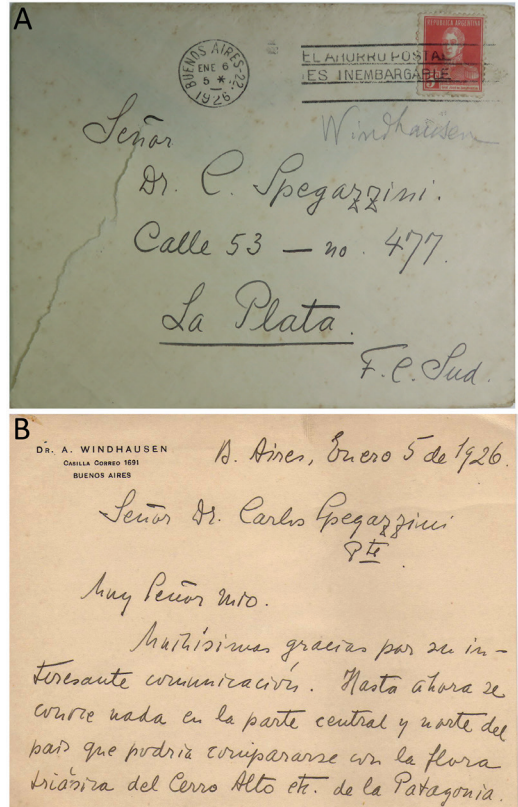 A
BUENOS AIRES-22
ENE 6
5 *
1926
EL AHORRO POSTAL
ES INEMBARGABLE
REPUBLICA ARGENTINA
5
Windhausen
Señor
Dr. C. Spegazzini.
Calle 53 — no. 477.
La Plata.
F. C. Sud.
B
DR. A. WINDHAUSEN
CASILLA CORREO 1691
BUENOS AIRES
B. Aires, Enero 5 de 1926.
Señor Dr. Carlos Spegazzini
Pte
Muy Señor mio.
Muchísimas gracias por su in-
teresante comunicación. Hasta ahora se
conoce nada en la parte central y norte del
país que podría compararse con la flora
triásica del Cerro Alto etc. de la Patagonia.